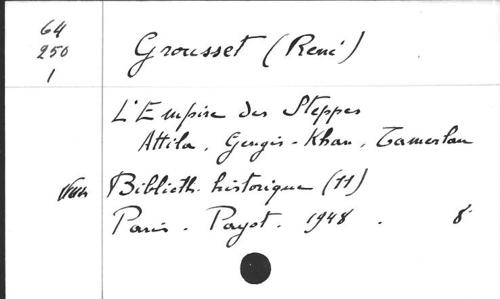 64
250
1
Grousset (René)
L'Empire des Steppes
Attila, Gengis-Khan, Tamerlan
Biblioth. historique (11)
Paris. Payot. 1948. 8°